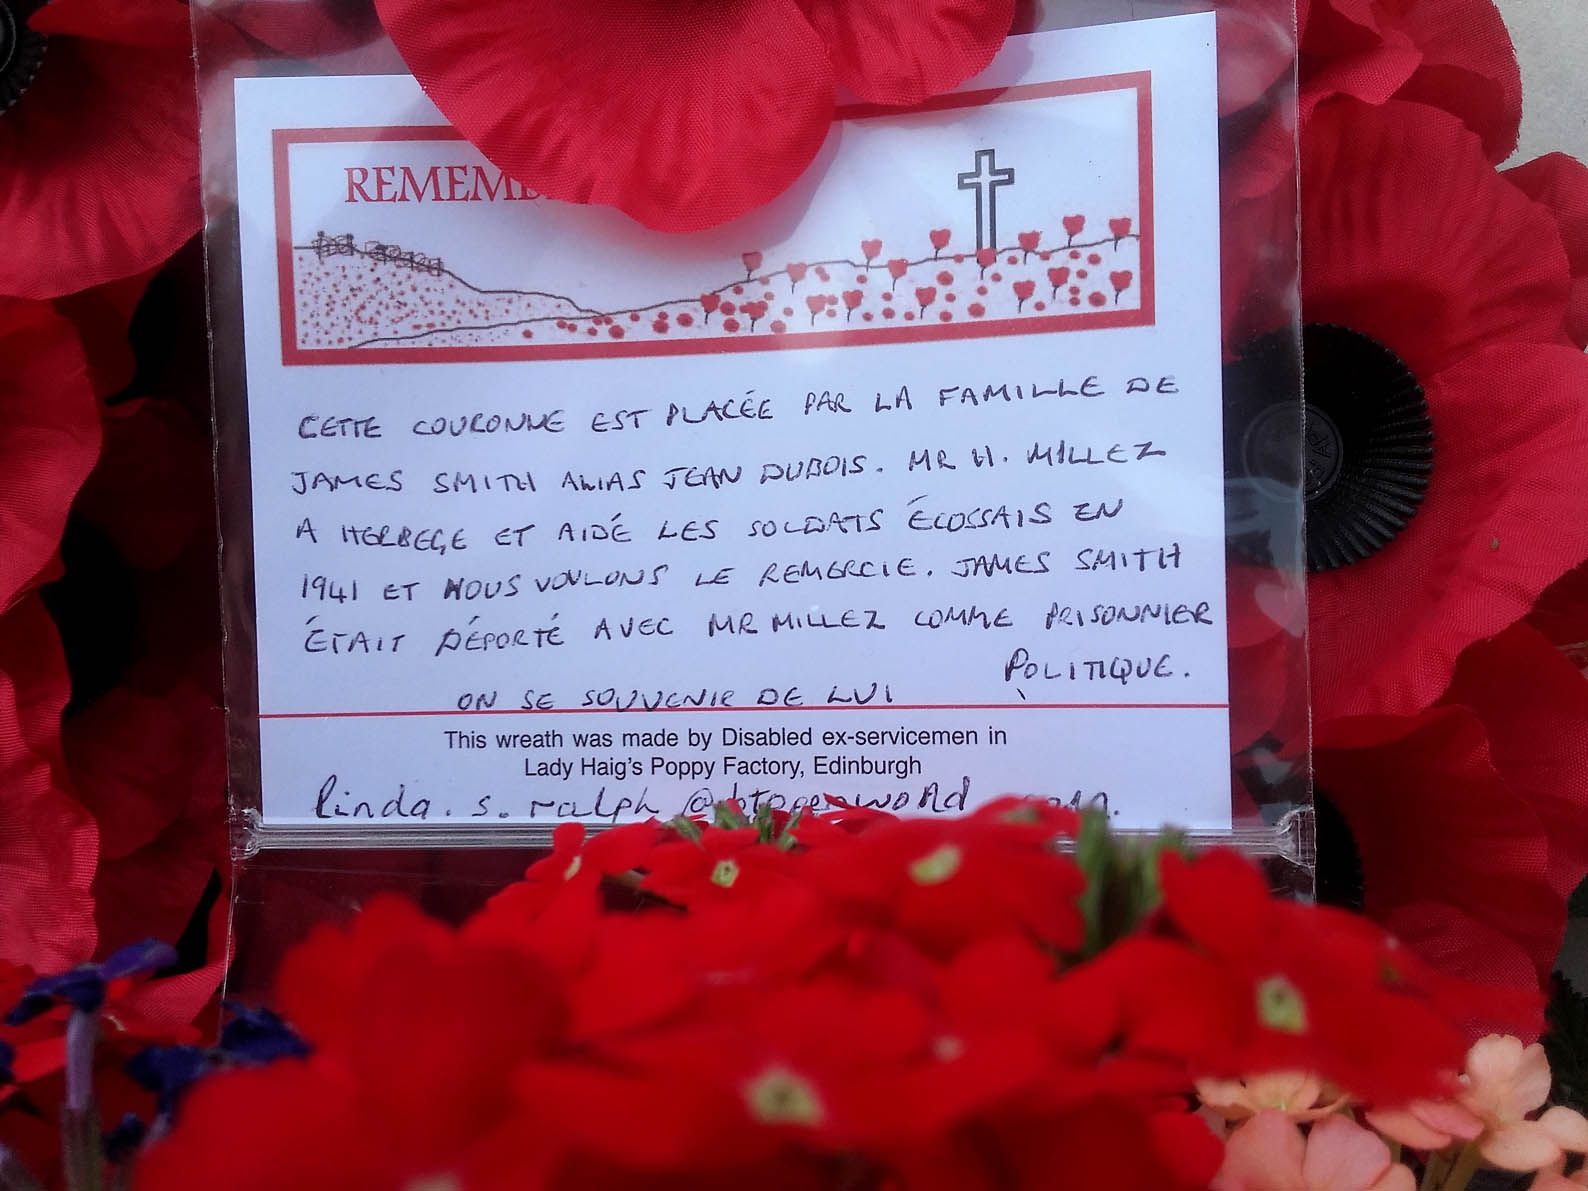 CETTE COURONNE EST PLACÉE PAR LA FAMILLE DE
JAMES SMITH ALIAS JEAN DUBOIS. MR H. MILLEZ
A HERBEGE ET AIDÉ LES SOLDATS ÉCOSSAIS EN
1941 ET NOUS VOULONS LE REMERCIE. JAMES SMITH
ÉTAIT DÉPORTÉ AVEC MR MILLEZ COMME PRISONNIER
POLITIQUE.
ON SE SOUVENIR DE LUI
This wreath was made by Disabled ex-servicemen in
Lady Haig's Poppy Factory, Edinburgh
linda. s. ralph